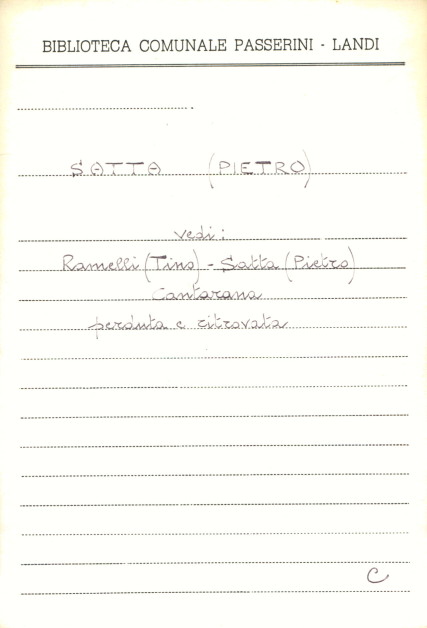 BIBLIOTECA COMUNALE PASSERINI - LANDI
SATTA (PIETRO)
vedi:
Ramelli (Tino) - Satta (Pietro)
Cantarana
perduta e ritrovata
C